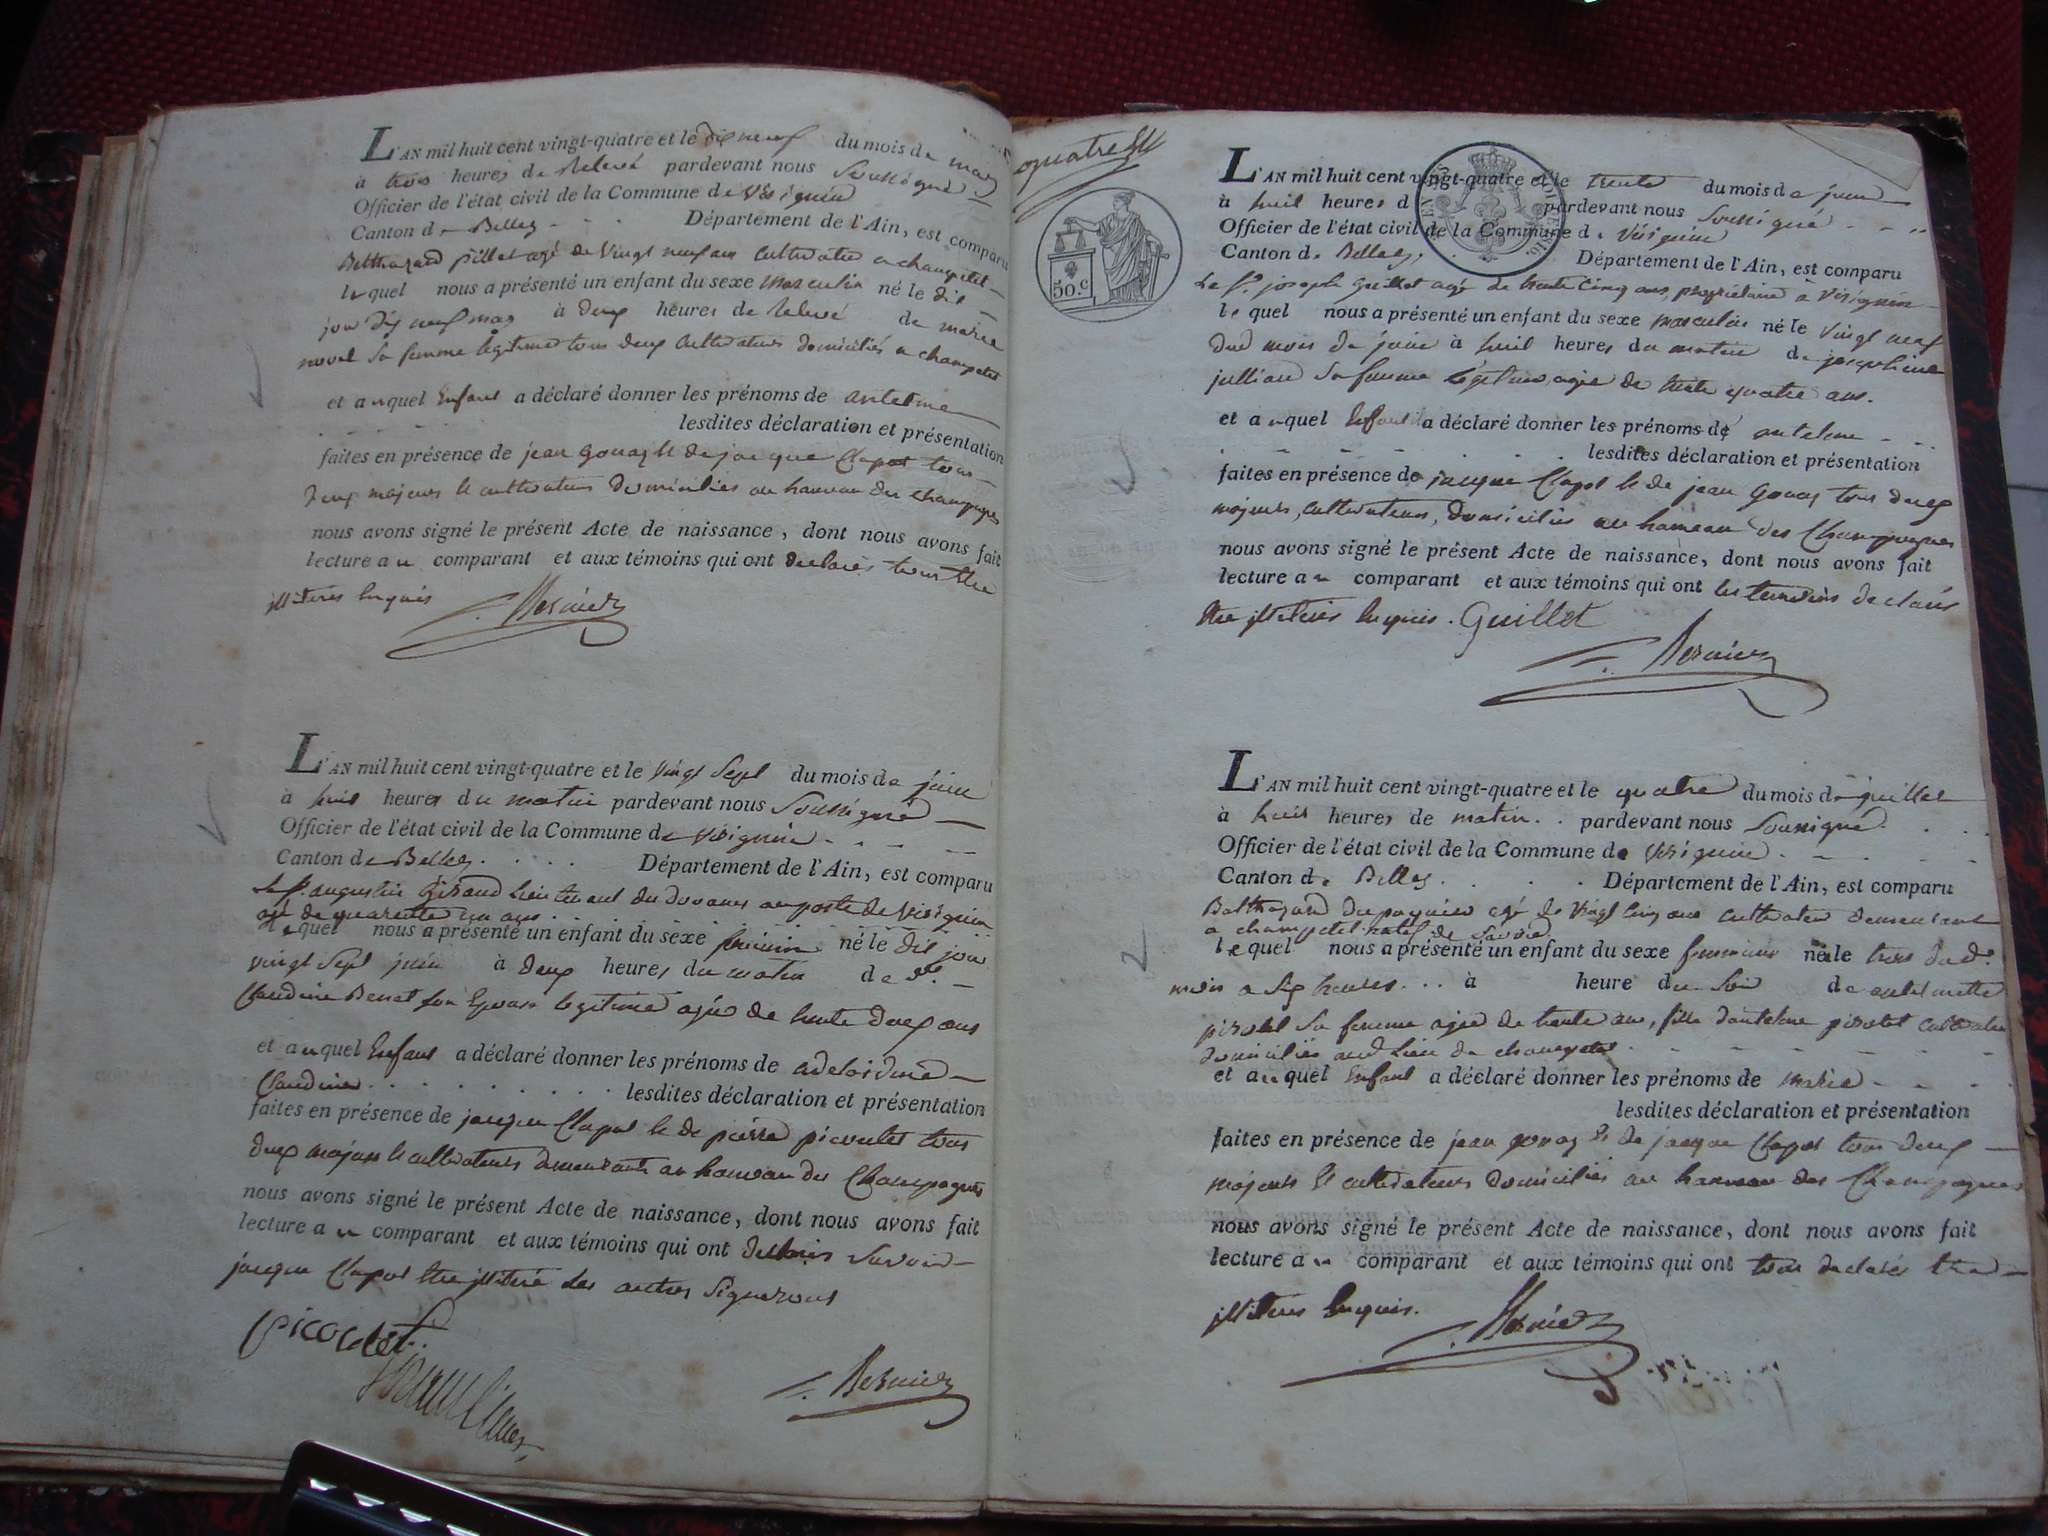 L'AN mil huit cent vingt-quatre et le dix neuf du mois de may
à trois heures de Relevé pardevant nous Soussigné
Officier de l'état civil de la Commune de Virignin
Canton de Belley Département de l'Ain, est comparu
Balthazard pillet agé de Vingt neuf ans cultivateur a champtel
lequel nous a présenté un enfant du sexe masculin né le dit
jour dix neuf may à deux heures de Relevé de marie
novel sa femme légitime tous deux cultivateurs domiciliés a champetel
et auquel Enfant a déclaré donner les prénoms de antelme
lesdites déclaration et présentation
faites en présence de jean gonaz & de jacque Clapot tous
deux majeurs & cultivateurs domiciliés au hameau des Champagnes
nous avons signé le présent Acte de naissance, dont nous avons fait
lecture au comparant et aux témoins qui ont declarés tous être
illiterés Enquis
L'AN mil huit cent vingt-quatre et le vingt Sept du mois de juin
à huit heures du matin pardevant nous Soussigné
Officier de l'état civil de la Commune de Virignin
Canton de Belley Département de l'Ain, est comparu
le Sr. augustin Giraud Lieutenant des Douanes au poste de Virignin
agé de quarante un ans
lequel nous a présenté un enfant du sexe feminin né le dit jour
vingt Sept juin à deux heures du matin de De.
Claudine Benet son Epouse legitime agée de trente deux ans
et auquel Enfant a déclaré donner les prénoms de
Claudine lesdites déclaration et présentation
faites en présence de jacque Clapot & de pierre picoulet tous
deux majeurs & cultivateurs demeurants au hameau des Champagnes
nous avons signé le présent Acte de naissance, dont nous avons fait
lecture au comparant et aux témoins qui ont declarés Savoir
jacque Clapot être illiteré les autres Signeront
quatre
50.c
L'AN mil huit cent vingt-quatre et le trente du mois de juin
à huit heures d pardevant nous Soussigné
Officier de l'état civil de la Commune de Virignin
Canton de Belley Département de l'Ain, est comparu
Le Sr. joseph Guillet agé de trente cinq ans, propriétaire à Virignin
lequel nous a présenté un enfant du sexe masculin né le vingt neuf
dud mois de juin à huit heures du matin de josephine
jullian sa femme légitime, agée de trente quatre ans.
et auquel Enfant a déclaré donner les prénoms de antelme
lesdites déclaration et présentation
faites en présence de jacque Clapot & de jean gonaz tous deux
majeurs, cultivateurs, domiciliés au hameau des Champagnes
nous avons signé le présent Acte de naissance, dont nous avons fait
lecture au comparant et aux témoins qui ont les temoins declarés
être illiterés Enquis. Guillet
L'AN mil huit cent vingt-quatre et le quatre du mois de juillet
à huit heures de matin pardevant nous Soussigné
Officier de l'état civil de la Commune de Virignin
Canton de Belley Département de l'Ain, est comparu
Balthazard agé de Vingt cinq ans cultivateur demeurant
a champetel natif de Savoie
lequel nous a présenté un enfant du sexe feminin née le trois dud.
mois a six heures à heure du Soir de antelmette
pirotet sa femme agée de trente ans, fille d'antelme pirotet cultivateur
domiciliés aud Lieu de champetel
et auquel Enfant a déclaré donner les prénoms de marie
lesdites déclaration et présentation
faites en présence de jean gonaz & de jacque Clapot tous deux
majeurs & cultivateurs domiciliés au hameau des Champagnes
nous avons signé le présent Acte de naissance, dont nous avons fait
lecture au comparant et aux témoins qui ont tous declarés être
illiterés Enquis.